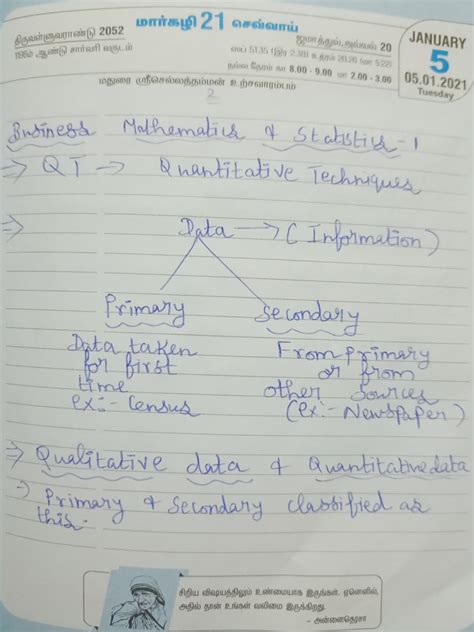 திருவள்ளுவராண்டு 2052
மார்கழி 21 செவ்வாய்
ஜமாத்துல் அவ்வல் 20
JANUARY
5
05.01.2021
Tuesday
நல்ல நேரம் கா 8.00 - 9.00 மா 2.00 - 3.00
மதுரை ஸ்ரீசெல்லத்தம்மன் உற்சவாரம்பம்
2
Business Mathematics & Statistics - 1
⇒ QT → Quantitative Techniques
⇒ Data → (Information)
Primary Secondary
Data taken From primary
for first or from
time other sources
ex:- Census (ex:- Newspaper)
⇒ Qualitative data & Quantitative data
⇒ Primary & Secondary classified as
this.
சிறிய விஷயத்திலும் உண்மையாக இருங்கள். ஏனெனில்,
அதில் தான் உங்கள் வலிமை இருக்கிறது.
- அன்னைதெரசா